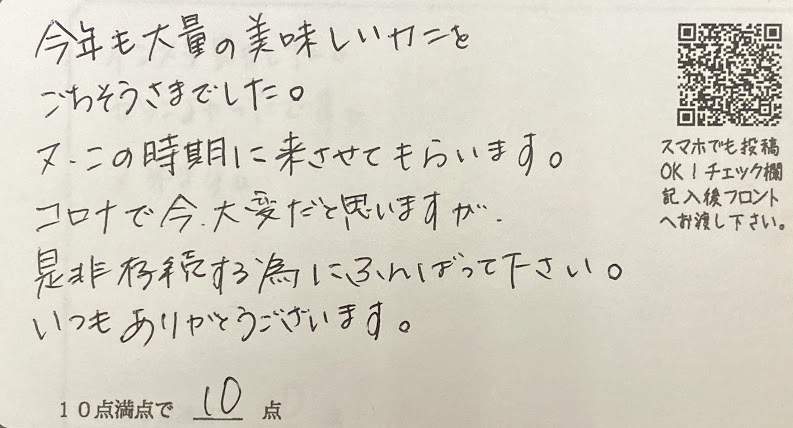 今年も大量の美味しいカニを
ごちそうさまでした。
又.この時期に来させてもらいます。
コロナで今.大変だと思いますが.
是非存続する為にふんばって下さい。
いつもありがとうございます。
10点満点で 10 点
スマホでも投稿
OK!チェック欄
記入後フロント
へお渡し下さい。